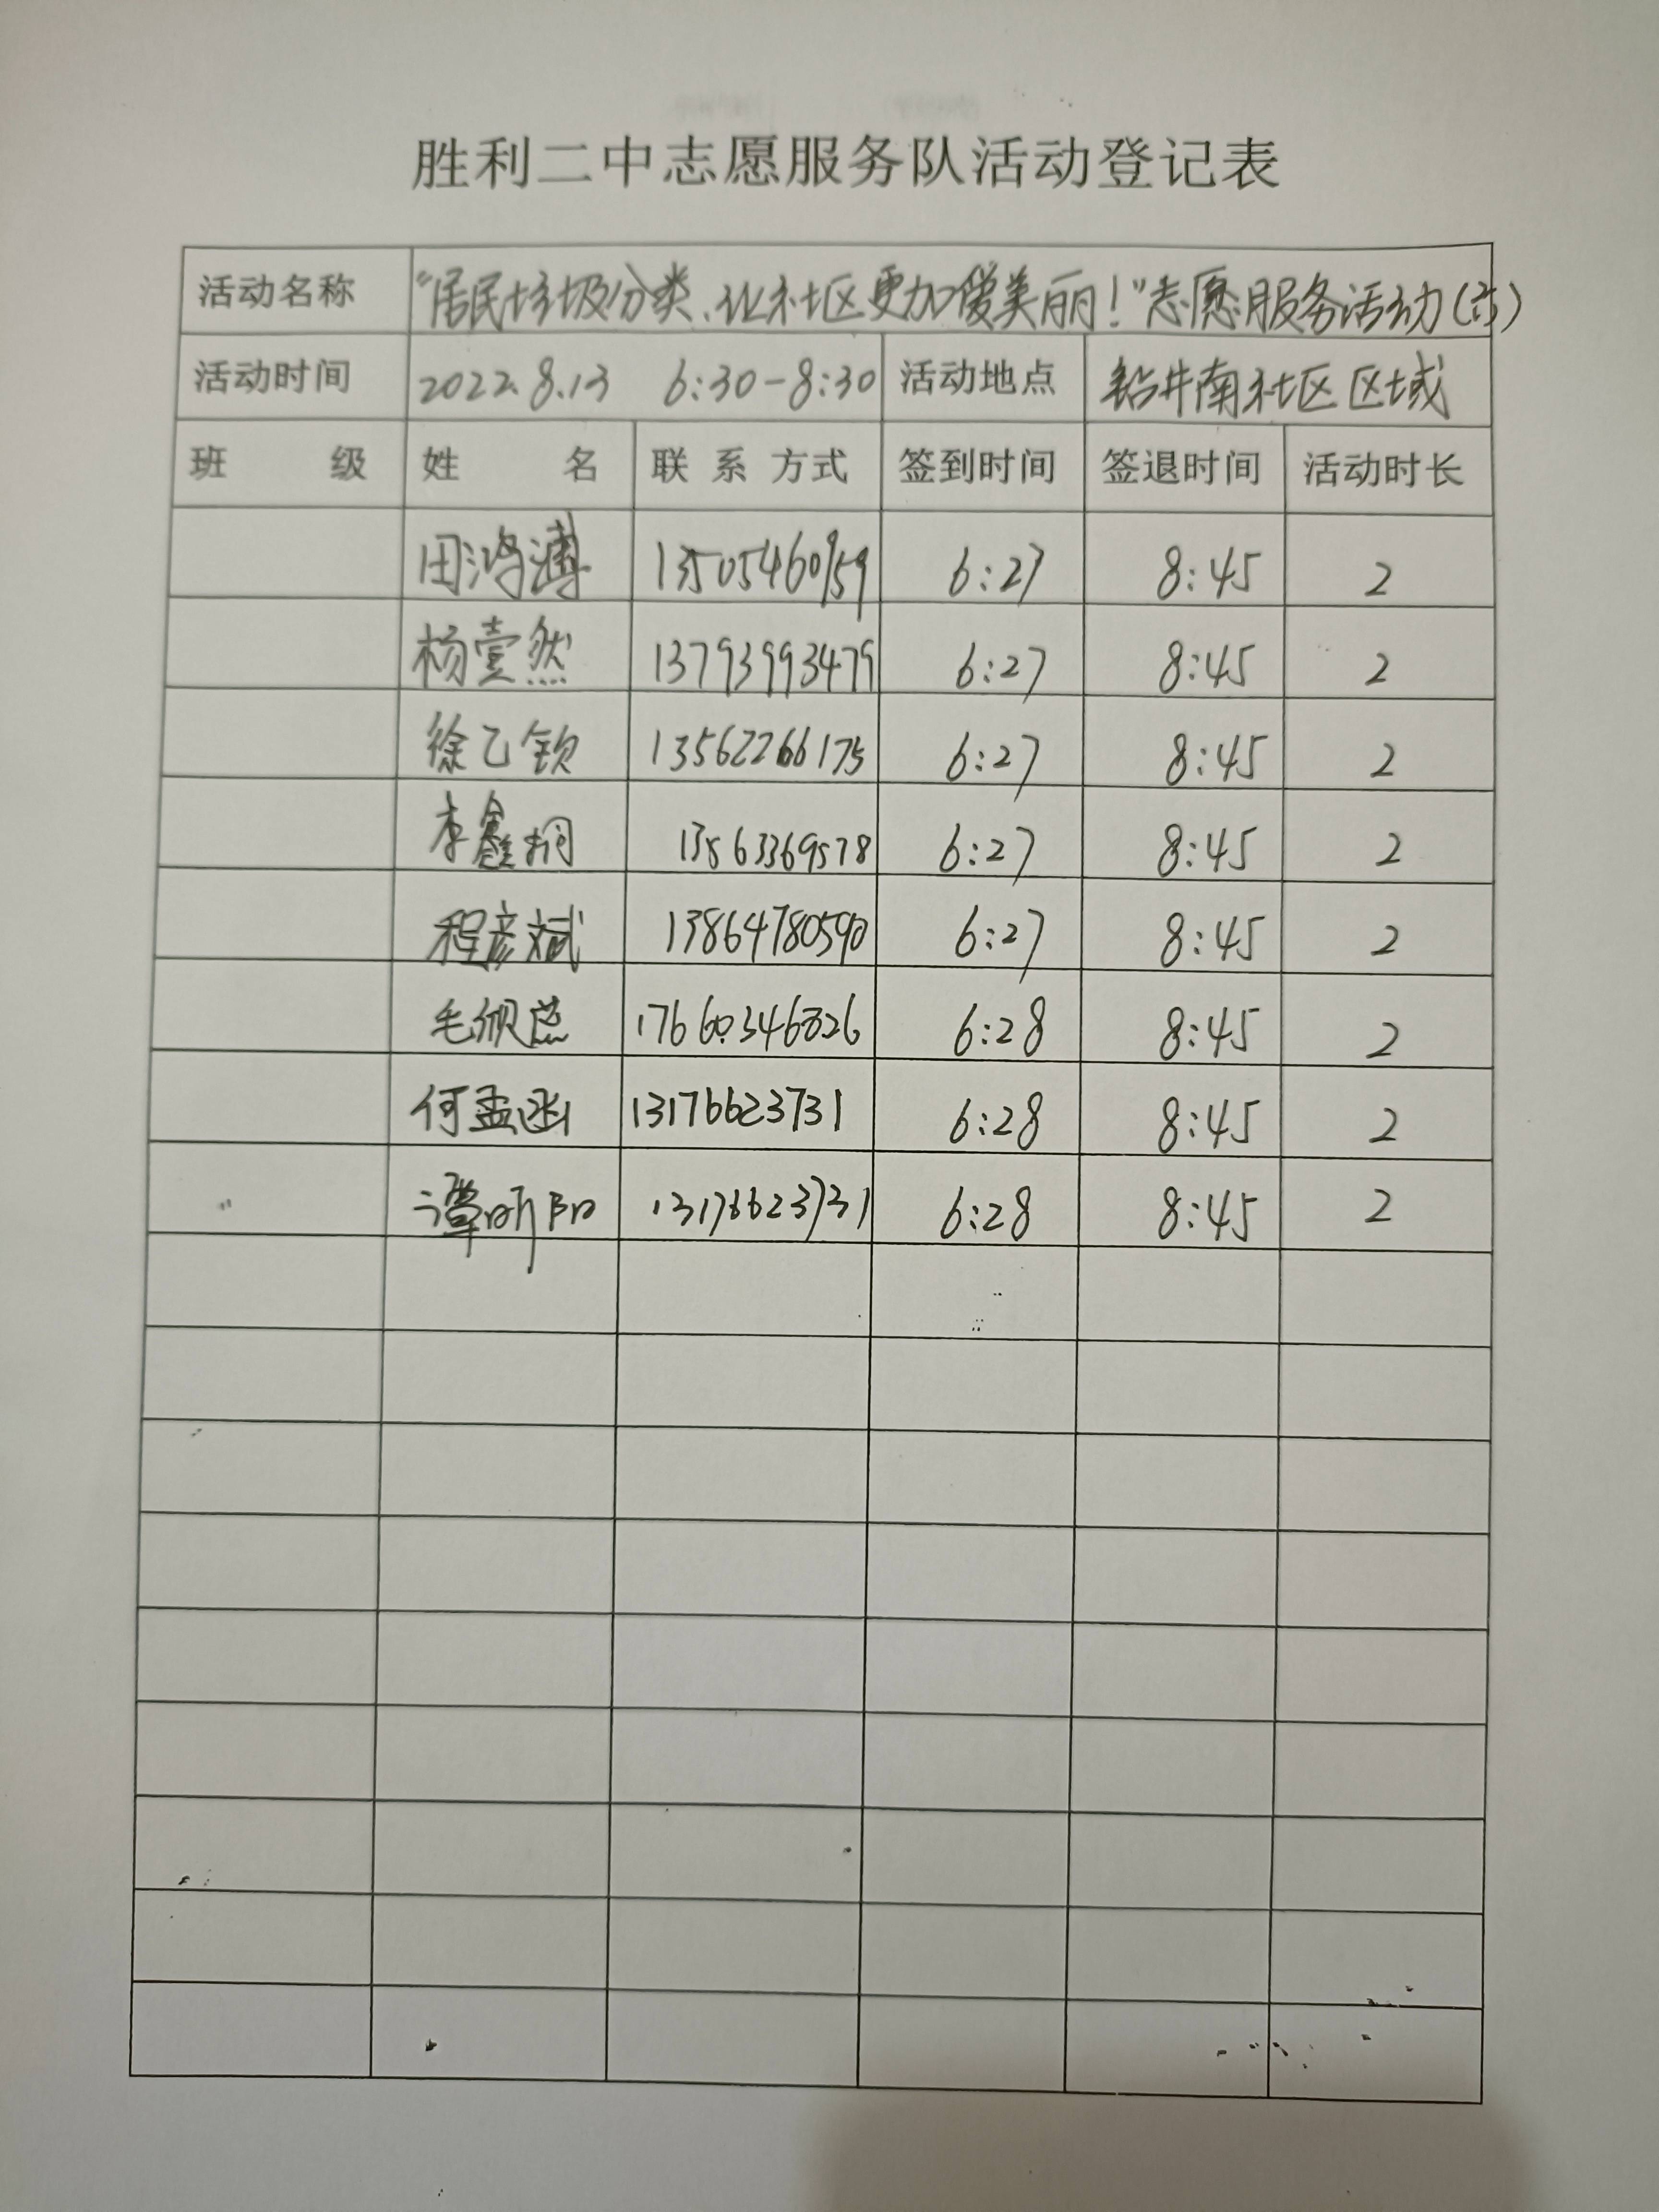 胜利二中志愿服务队活动登记表
活动名称 “居民垃圾分类、让社区更加美丽！”志愿服务活动(六)
活动时间 2022.8.13 6:30-8:30 活动地点 钻井南社区区域
班 级 姓 名 联 系 方式 签到时间 签退时间 活动时长
田鸿 13505460959 6:27 8:45 2
杨壹然 13793993479 6:27 8:45 2
徐乙钦 13562266175 6:27 8:45 2
李鑫桐 13563369578 6:27 8:45 2
程彦斌 13864780590 6:27 8:45 2
毛 17660346826 6:28 8:45 2
何孟函 13176623731 6:28 8:45 2
谭昕阳 13176623731 6:28 8:45 2